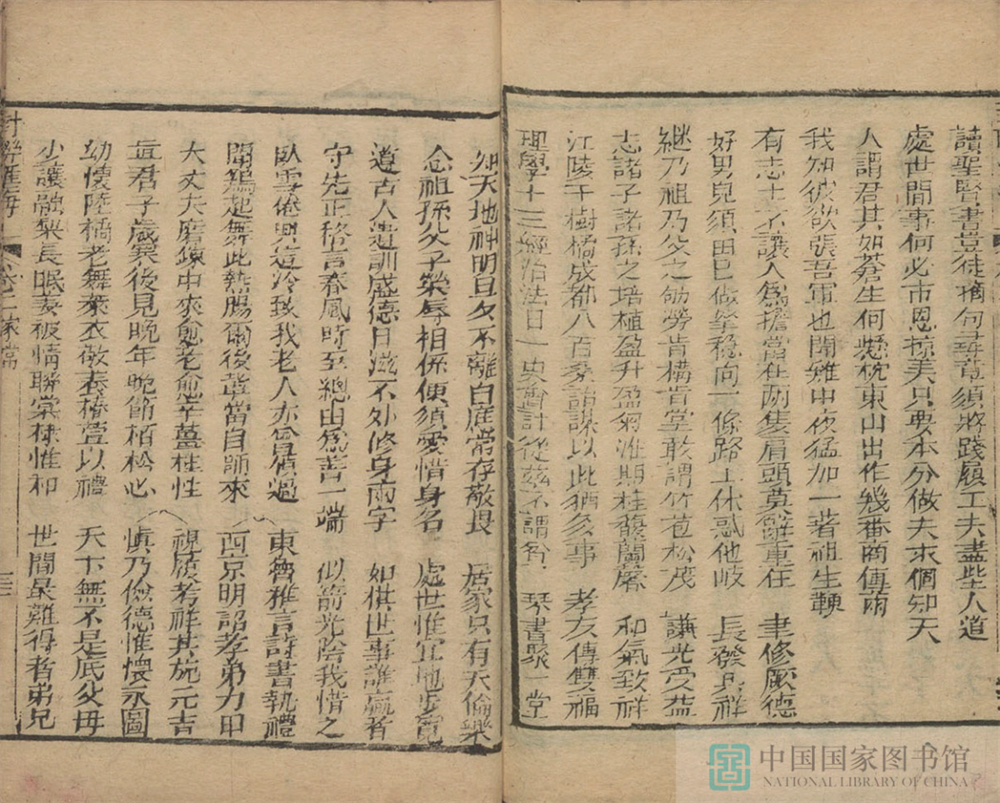 讀聖賢書豈徒摘句尋章須將踐履工夫盡些人道
處世間事何必市恩掠美只要本分做去求個知天
人謂君其如蒼生何憖枕東山出作幾番商傅雨
我知彼欲張吾軍也聞雞中夜猛加一著祖生鞭
有志士不讓人爲擔當在兩隻肩頭莫辭重任 聿修厥德
好男兒須由己做拏穩向一條路上休惑他岐 長發其祥
繼乃祖乃父之劬勞肯構肯堂敢謂竹苞松茂 謙光受益
志諸子諸孫之培植盈升盈匊惟期桂馥蘭馨 和氣致祥
江陵千樹橘成都八百桑詒謀以此猶多事 孝友傳雙福
理學十三經治法日一史會計從茲不謂貧 琴書聚一堂
知天地神明旦夕不離白屋常存敬畏 居家只有天倫樂
念祖孫父子榮辱相係便須愛惜身名 處世惟宜地步寬
遵古人遺訓盛德日滋不外修身兩字 如棋世事誰贏者
守先正格言春風時至總由爲善一端 似箭光陰我惜之
臥雪倦興這冷致我老人亦嘗領過 東魯雅言詩書執禮
聞鷄起舞此熱腸爾後輩當自師來 西京明詔孝弟力田
大丈夫磨鍊中來愈老愈辛薑桂性 視履考祥其施元吉
眞君子歲寒後見晚年晚節栢松心 慎乃儉德惟懷永圖
幼懷陸橘老舞萊衣敬養椿萱以禮 天下無不是底父母
少讓融梨長眠姜被情聯棠棣惟和 世間最難得者弟兄
卷二 家常
中国国家图书馆
NATIONAL LIBRARY OF CHINA